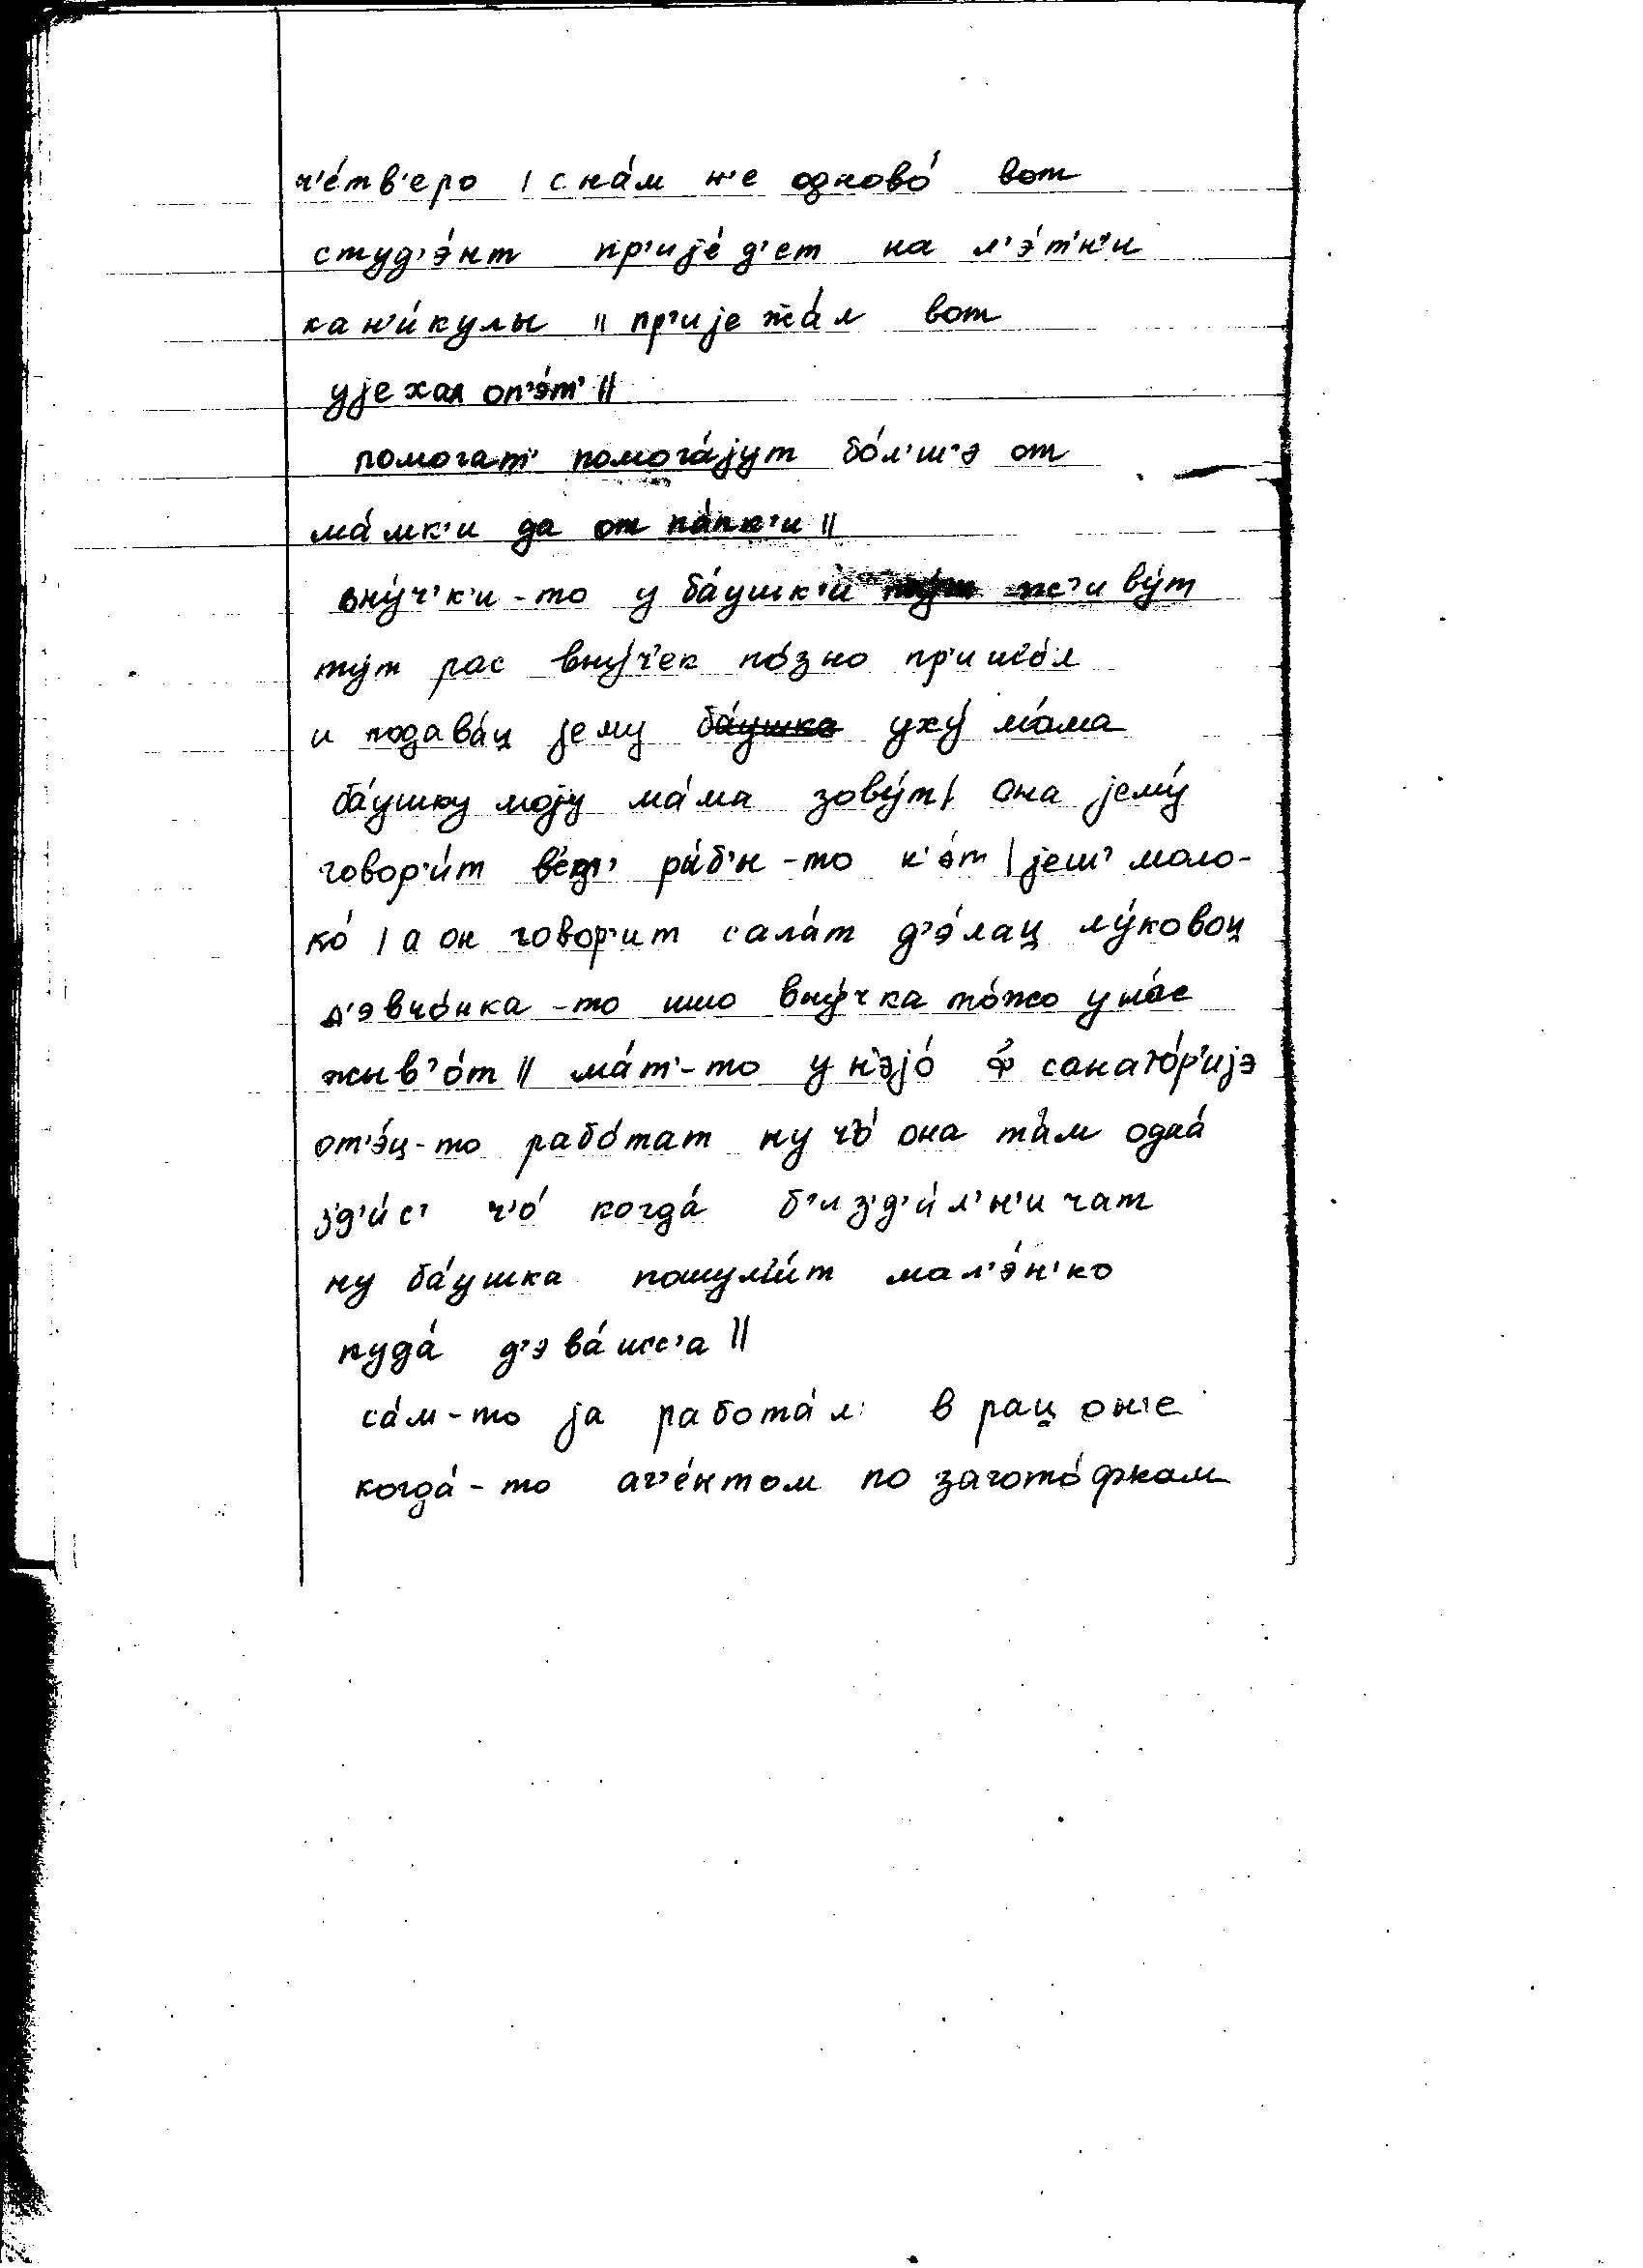 ч'е́тв'еро | с на́м н'е одново́ вот
студ'э́нт пр'ије́д'ет на л'э́т'н'и
кан'и́кулы || пр'ијежа́л вот
ујехал оп'э́т' ||
помогат' помога́јут бо́л'ш'э от
ма́мк'и да от па́пк'и ||
вну́ч'к'и-то у ба́ушк'и ж'иву́т
ту́т рас вну́ч'ек по́зно пр'ишо́л
и подава́ц јему уху́ ма́ма
ба́ушку моју ма́ма зову́т | она јему́
говор'и́т ры́б'н-то н'э́т | јеш' моло-
ко́ | а он говор'ит сала́т д'э́лац лу́ковоц
д'эвчо́нка-то ишо вну́чка то́жо у на́с
жыв'о́т || ма́т'-то у н'эјо́ ф санато́р'ијэ
от'э́ц-то рабо́тат ну чо́ она та́м одна́
з'д'и́с' ч'о́ когда́ б'из'д'и́л'н'ичат
ну ба́ушка пошумл'и́т мал'э́н'ко
куда́ д'эва́шс'а ||
са́м-то ја работа́л в рацоне
когда́-то аг'е́нтом по загото́фкам